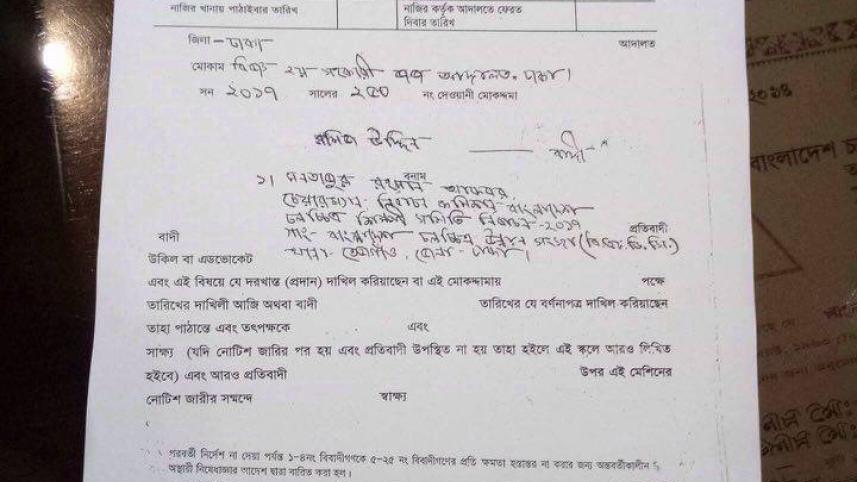 নাজির খানায় পাঠাইবার তারিখ
নাজির কর্তৃক আদালতে ফেরত
দিবার তারিখ
জিলা - ঢাকা
আদালত
মোকাম বিজ্ঞ ২য় সহকারী জজ আদালত, ঢাকা।
সন ২০১৭ সালের ২৫০ নং দেওয়ানী মোকদ্দমা
উদ্দিন বাদী
বনাম
১। রহমান
চেয়ারম্যান, নির্বাচন কমিশন বাংলাদেশ
চলচ্চিত্র শিল্পী সমিতি নির্বাচন-২০১৭
সাং- বাংলাদেশ চলচ্চিত্র উন্নয়ন সংস্থা (বি.এফ.ডি.সি.)
থানা- তেজগাঁও, জেলা- ঢাকা।
বাদী
প্রতিবাদী
উকিল বা এডভোকেট
এবং এই বিষয়ে যে দরখাস্ত (প্রদান) দাখিল করিয়াছেন বা এই মোকদ্দামায় পক্ষে
তারিখের দাখিলী আজি অথবা বাদী তারিখের যে বর্ণনাপত্র দাখিল করিয়াছেন
তাহা পাঠান্তে এবং তৎপক্ষকে এবং
সাক্ষ্য (যদি নোটিশ জারির পর হয় এবং প্রতিবাদী উপস্থিত না হয় তাহা হইলে এই স্থলে আরও লিখিত
হইবে) এবং আরও প্রতিবাদী উপর এই মেশিনের
নোটিশ জারীর সম্মন্দে স্বাক্ষ্য
পরবর্তী নির্দেশ না দেয়া পর্যন্ত ১-৪নং বিবাদীগণকে ৫-২৫ নং বিবাদীগণের প্রতি ক্ষমতা হস্তান্তর না করার জন্য অন্তবর্তীকালীন
অস্থায়ী নিষেধাজ্ঞার আদেশ দ্বারা বারিত করা হল।
২০১৪
বাংলাদেশ চ